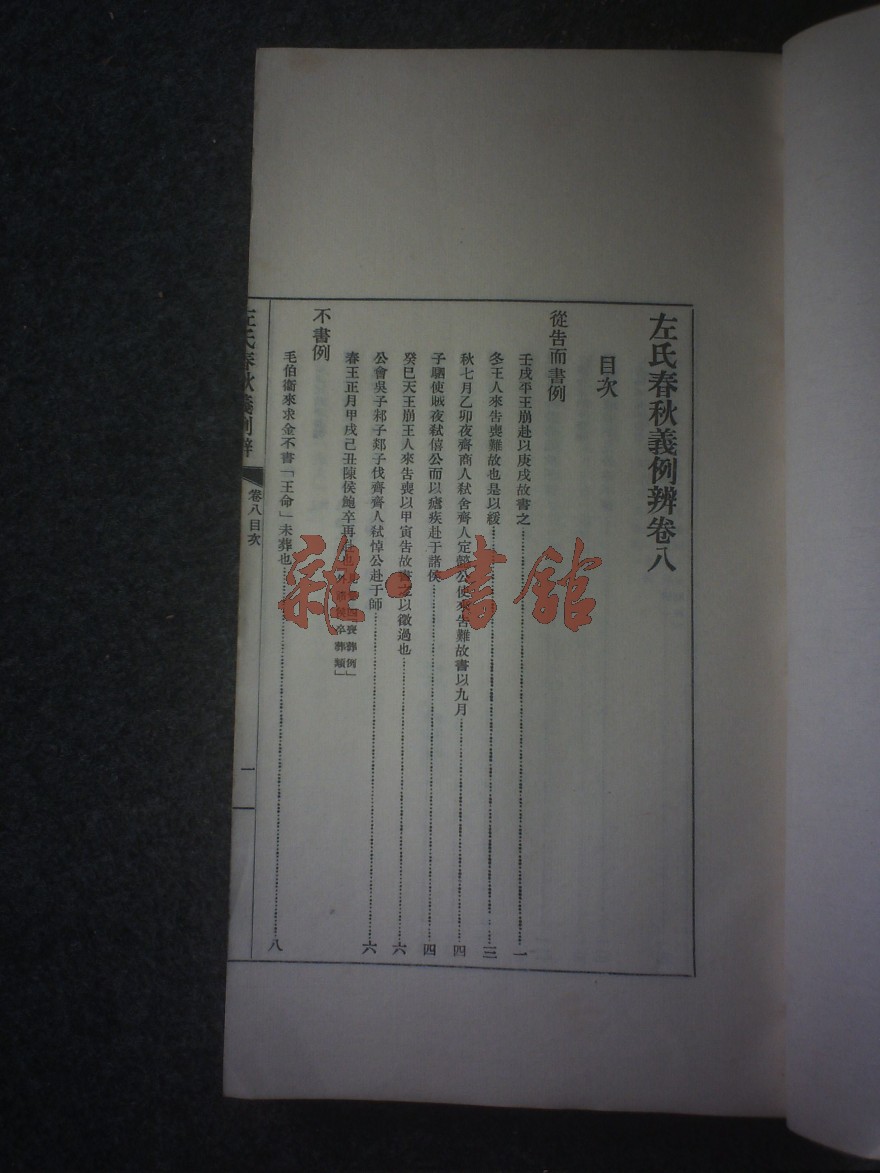 左氏春秋義例辨卷八
目次
從告而書例
壬戌平王崩赴以庚戌故書之……一
冬王人來告喪難故也是以緩……三
秋七月乙卯夜齊商人弒舍齊人定懿公使來告難故書以九月……四
子駟使賊夜弒僖公而以瘧疾赴于諸侯……四
癸巳天王崩王人來告喪以甲寅告故書之以徵過也……六
公會吳子邾子郯子伐齊齊人弒悼公赴于師……六
春王正月甲戌己丑陳侯鮑卒再赴也
喪葬例」
卒葬類」
不書例
毛伯衞來求金不書「王命」未葬也……八
左氏春秋義例辨
卷八目次
一
雜·書館